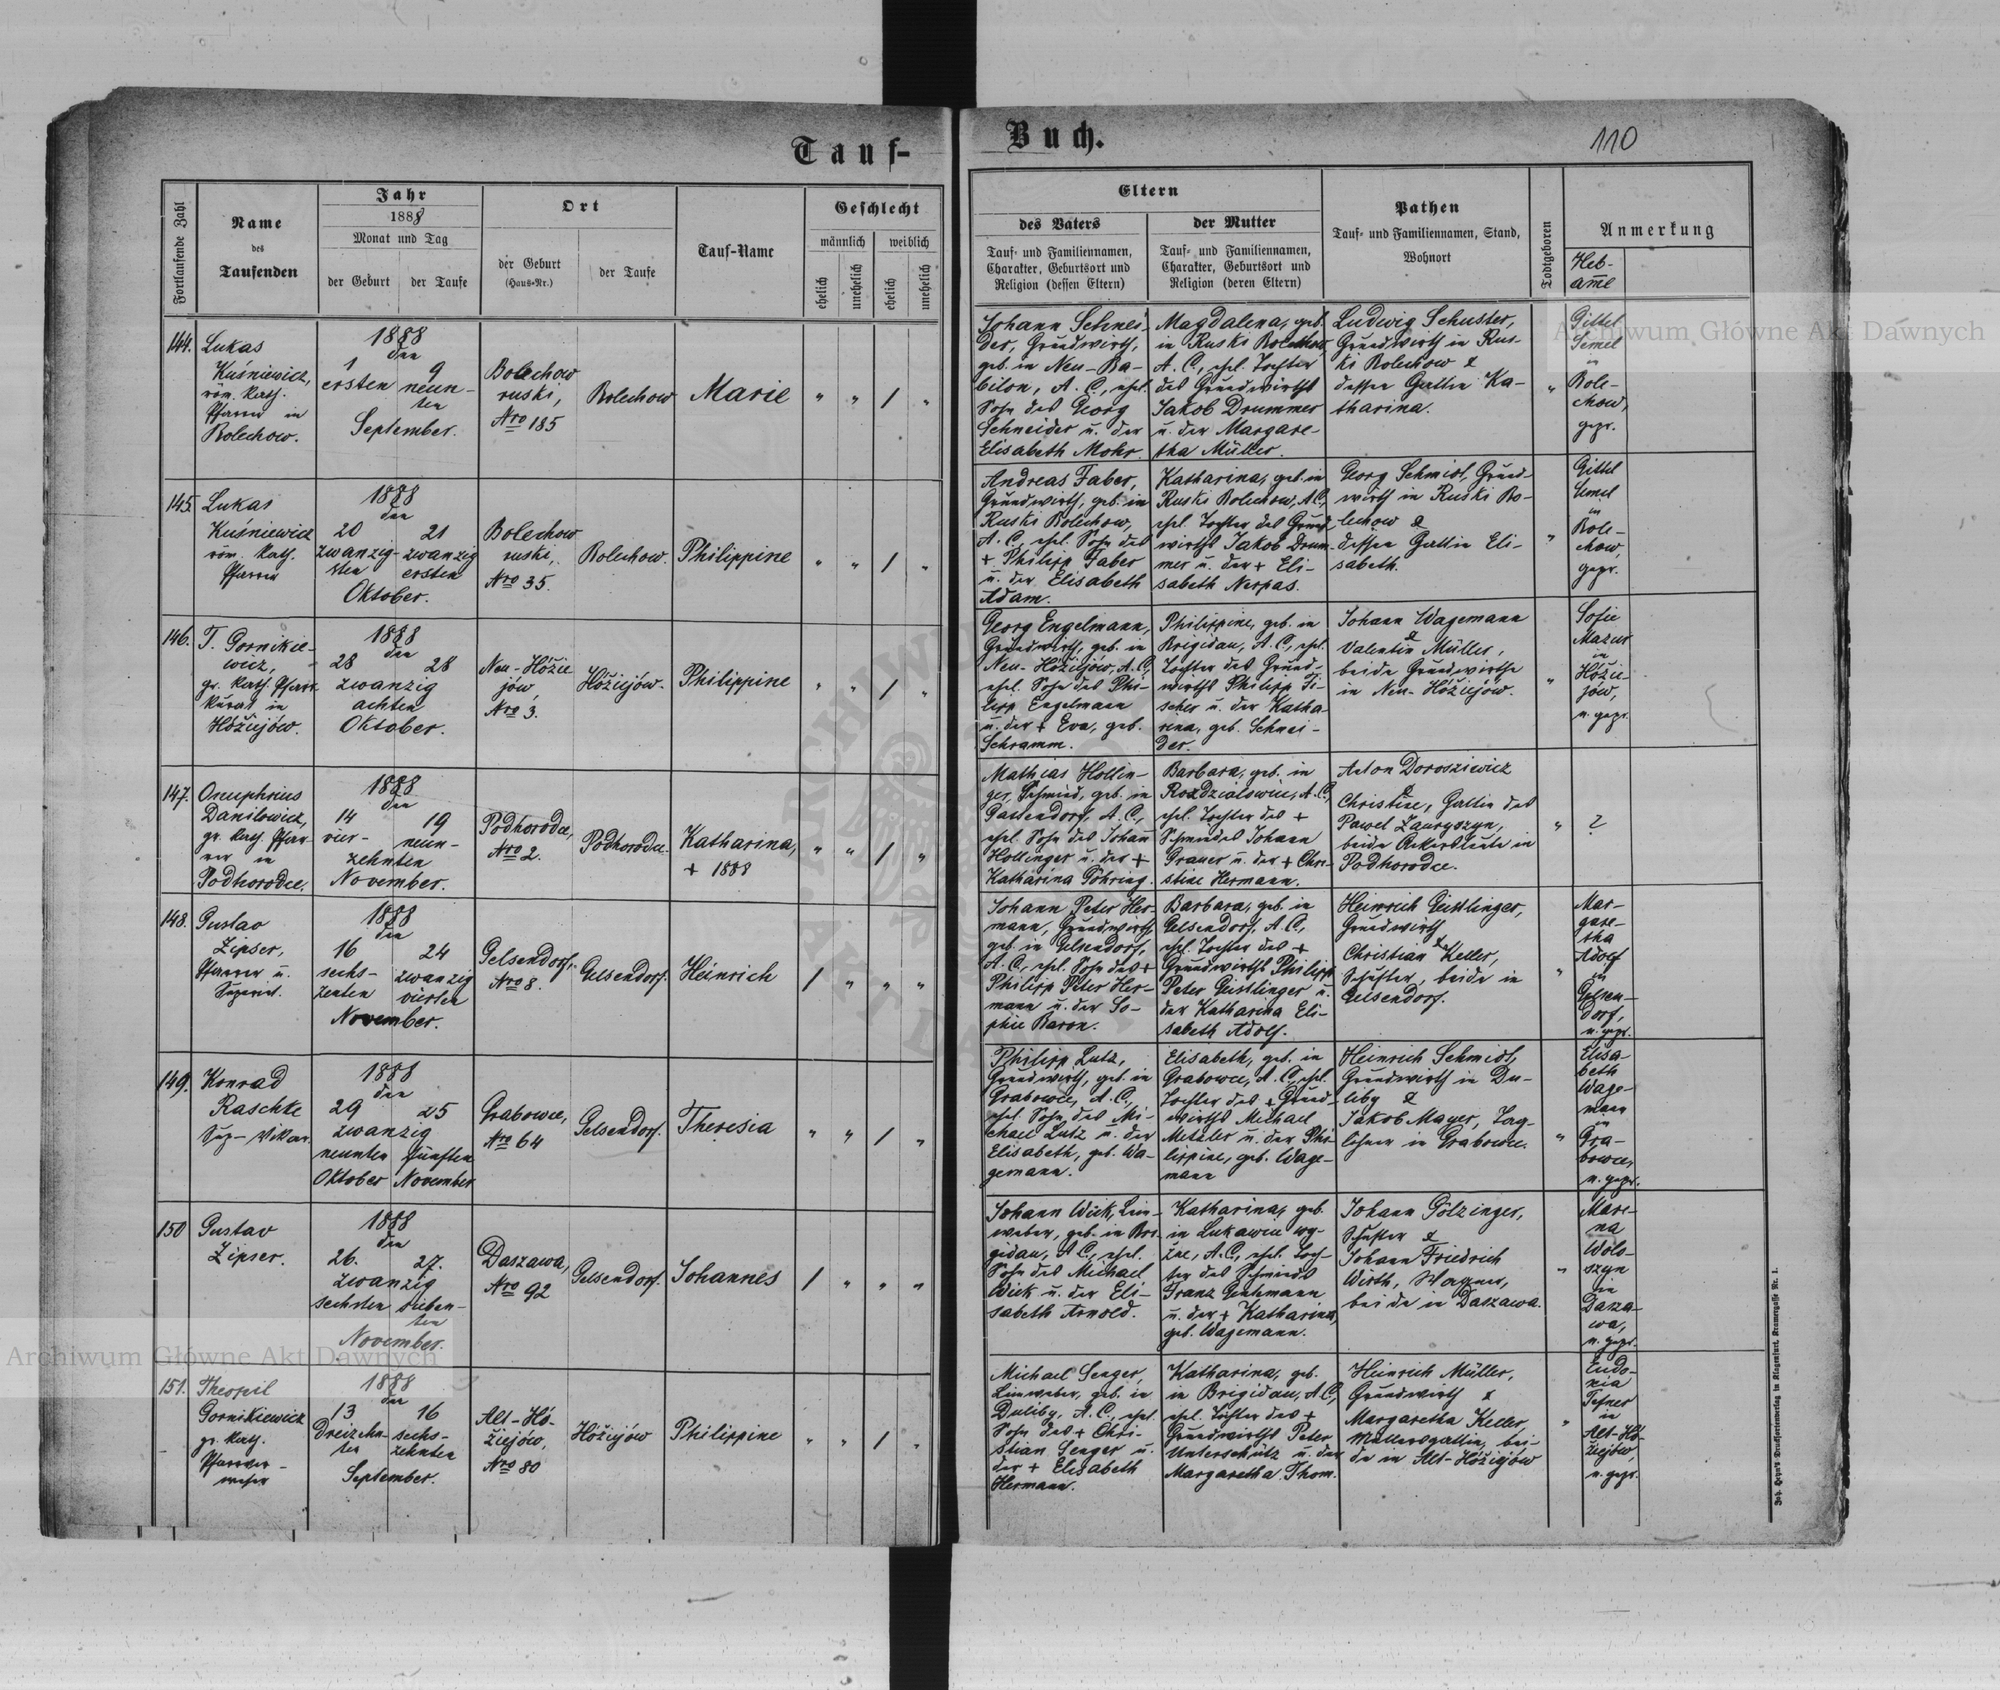 Tauf-
Buch.
110
Fortlaufende Zahl
Name
des
Taufenden
Jahr
1888
Monat und Tag
der Geburt
der Taufe
Ort
der Geburt
(Haus-Nr.)
der Taufe
Tauf-Name
Geschlecht
männlich
weiblich
ehelich
unehelich
ehelich
unehelich
Eltern
des Vaters
Tauf- und Familiennamen,
Charakter, Geburtsort und
Religion (dessen Eltern)
der Mutter
Tauf- und Familiennamen,
Charakter, Geburtsort und
Religion (deren Eltern)
Pathen
Tauf- und Familiennamen, Stand,
Wohnort
Todtgeboren
Anmerkung
Heb-
ame
144.
Lukas
Kuśniewicz,
röm. kath.
Pfarrer in
Bolechow.
1888
den
1 9
ersten neun-
ten
September.
Bolechow
ruski,
Nro 185
Bolechow
Marie
" " / "
Johann Schnei-
der, Grundwirth,
geb. in Neu-Ba-
bilon, A. C., ehel.
Sohn des Georg
Schneider u. der
Elisabeth Mohr.
Magdalena, geb.
in Ruski Bolechow,
A. C., ehel. Tochter
des Grundwirths
Jakob Drummer
u. der Margare-
tha Müller.
Ludwig Schuster,
Grundwirth in Rus-
ki Bolechow &
dessen Gattin Ka-
tharina.
"
Gittel
Semel
in
Bole-
chow,
gepr.
145.
Lukas
Kuśniewicz
röm. kath.
Pfarrer
1888
den
20 21
zwanzig- zwanzig
sten ersten
Oktober.
Bolechow
ruski,
Nro 35.
Bolechow.
Philippine
" " / "
Andreas Faber,
Grundwirth, geb. in
Ruski Bolechow,
A. C., ehel. Sohn des
+ Philipp Faber
u. der Elisabeth
Adam.
Katharina, geb. in
Ruski Bolechow, A.C.,
ehel. Tochter des Grund-
wirths Jakob Drum-
mer u. der + Eli-
sabeth Nerpas.
Georg Schmidt, Grund-
wirth in Ruski Bo-
lechow &
dessen Gattin Eli-
sabeth.
"
Gittel
Semel
in
Bole-
chow,
gepr.
146.
T. Gornikie-
wicz,
gr. kath. Pfarr
Kurat in
Hóżiejów.
1888
den
28 28
zwanzig
achten
Oktober.
Neu-Hóżie
jów,
Nro 3.
Hóżiejów.
Philippine
" " / "
Georg Engelmann,
Grundwirth, geb. in
Neu-Hóżiejów, A.C,
ehel. Sohn des Phi-
lipp Engelmann
u. der + Eva, geb.
Schramm.
Philippine, geb. in
Brigidau, A. C., ehel.
Tochter des Grund-
wirths Philipp Fi-
scher u. der Katha-
rina, geb. Schnei-
der.
Johann Wagemann
&
Valentin Müller,
beide Grundwirthe
in Neu-Hóżiejów.
"
Sofie
Mazur
in
Hóżie-
jów,
n. gepr.
147.
Onuphrius
Danilowicz,
gr. kath. Pfar-
rer in
Podhorodce.
1888
den
14 19
vier- neun-
zehnten
November.
Podhorodce,
Nro 2.
Podhorodce.
Katharina,
+ 1888
" " / "
Mathias Hollin-
ger, Schmied, geb. in
Gassendorf, A. C.,
ehel. Sohn des Johann
Hollinger u. der +
Katharina Göhring.
Barbara, geb. in
Rozdzialowice, A.C.,
ehel. Tochter des +
Schmiedes Johann
Grauer u. der + Chri-
stine Hermann.
Anton Dorosziewicz
&
Christine, Gattin des
Pawel Zauryszyn,
beide Ackersleute in
Podhorodce.
"
?
148.
Gustav
Zipser,
Pfarrer u.
Superint.
1888
den
16 24
sechs- zwanzig
zenten vierten
November.
Gelsendorf,
Nro 8.
Gelsendorf.
Heinrich
/ " " "
Johann Peter Her-
mann, Grundwirth
geb. in Gelsendorf,
A. C., ehel. Sohn des +
Philipp Peter Her-
mann u. der So-
phie Baron.
Barbara, geb. in
Gelsendorf, A.C.,
ehel. Tochter des +
Grundwirths Philipp
Peter Geistlinger u.
der Katharina Eli-
sabeth Adolf.
Heinrich Geistlinger,
Grundwirth
&
Christian Keller,
Schuster, beide in
Gelsendorf.
"
Mar-
gare-
tha
Adolf
in
Gelsen-
dorf,
n. gepr.
149.
Konrad
Raschke
Sup-Vikar.
1888
den
29 25
zwanzig
neunten fünften
Oktober November
Grabowce,
Nro 64
Gelsendorf.
Theresia
" " / "
Philipp Lutz,
Grundwirth, geb. in
Grabowce, A. C.,
ehel. Sohn des Mi-
chael Lutz u. der
Elisabeth, geb. Wa-
gemann.
Elisabeth, geb. in
Grabowce, A. C., ehel.
Tochter des + Grund-
wirths Michael
Metzler u. der Phi-
lippine, geb. Wage-
mann
Heinrich Schmidt,
Grundwirth in Du-
liby &
Jakob Mayer, Tag-
löhner in Grabowce.
"
Elisa-
beth
Wage-
mann
in
Gra-
bowce,
n. gepr.
150
Gustav
Zipser.
1888
den
26. 27.
zwanzig
sechsten sieben-
ten
November.
Daszawa,
Nro 92
Gelsendorf.
Johannes
/ " " "
Johann Wick, Lein-
weber, geb. in Bri-
gidau, A C., ehel.
Sohn des Michael
Wick u. der Eli-
sabeth Arnold.
Katharina, geb.
in Lukawice wy-
żne, A.C., ehel. Toch-
ter des Schmieds
Franz Gentemann
u. der + Katharina,
geb. Wagemann.
Johann Gölzinger,
Schuster &
Johann Friedrich
Wirth, Wagner,
beide in Daszawa.
"
Mare-
na
Wolo-
szyn
in
Dasza-
wa,
n. gepr.
151.
Theophil
Gornikiewicz
gr. kath.
Pfarrver-
weser
1888
den
13 16
Dreizehn- sechs-
ten zehnten
September.
Alt-Hó-
żiejów,
Nro 80
Hóżiejów
Philippine
" " / "
Michael Senger,
Leinweber, geb. in
Duliby, A. C., ehel.
Sohn des + Chri-
stian Senger u.
der + Elisabeth
Hermann.
Katharina, geb.
in Brigidau, A.C,
ehel. Tochter des +
Grundwirths Peter
Unterschütz u. der
Margaretha Thom.
Heinrich Müller,
Grundwirth &
Margaretha Keller
Müllersgattin, bei-
de in Alt-Hóżiejów
"
Eudo-
kia
in
Alt-Hó-
żiejów,
n. gepr.
Archiwum Główne Akt Dawnych
Archiwum Główne Akt Dawnych
Joh. Heyn's Drucksortenverlag in Klagenfurt, Kramergasse Nr. 1.